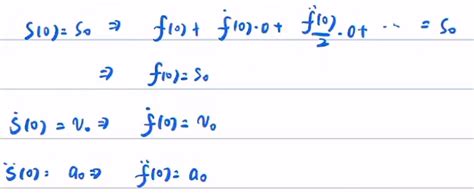 S(0) = S₀ ⇒ f(0) + ḟ(0)·0 + f̈(0)/2·0 + ··· = S₀
⇒ f(0) = S₀
Ṡ(0) = v₀ ⇒ ḟ(0) = v₀
S̈(0) = a₀ ⇒ f̈(0) = a₀